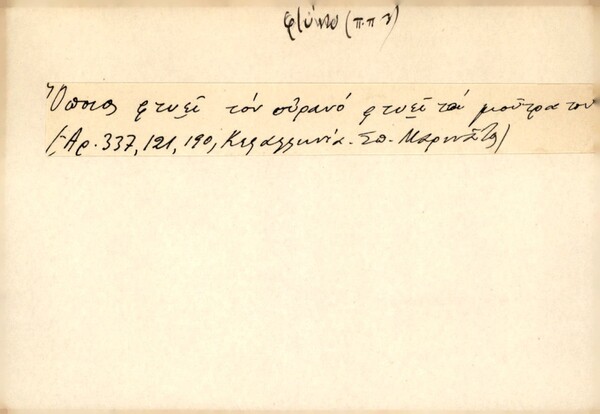 φτύνω (π.π γ)
Ὅποιος φτυεῖ τόν οὐρανό φτυεῖ τά μοῦτρα του
(Ἀρ. 337, 121, 190, Κεφαλληνία. Σπ. Μαρινᾶτος)